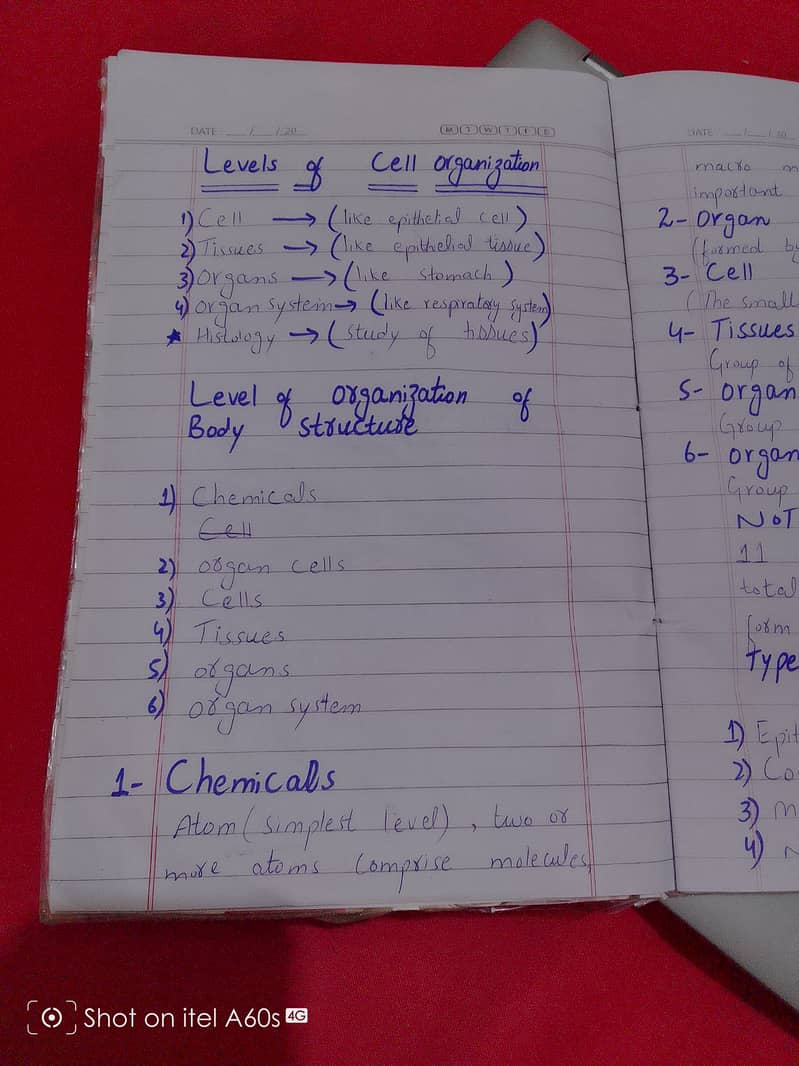 DATE __/__/20__
M T W T F S
Levels of Cell organization
1) Cell → (like epithelial cell)
2) Tissues → (like epithelial tissue)
3) Organs → (like stomach)
4) organ system → (like respiratory system)
★ Histology → (study of tissues)
Level of organization of
Body structure
1) Chemicals
Cell
2) organ cells
3) Cells
4) Tissues
5) organs
6) organ system
1- Chemicals
Atom (simplest level), two or
more atoms comprise molecules,
DATE __/__/20
macro m
important
2- organ
(formed by
3- Cell
(The small
4- Tissues
Group of
5- organ
Group
6- organ
Group
NOT
11
total
form
Type
1) Epit
2) Co
3) m
4) N
Shot on itel A60s 4G